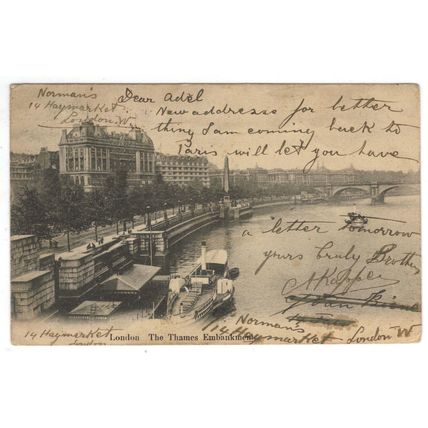 Norman's
14 Haymarket
London W
Dear adel
New addresse for bether
thing I am coming back to
Paris will let you have
a letter tomorrow
yours truly Brother
London The Thames Embankment
14 Haymarket
Norman's
114 Haymarket London W